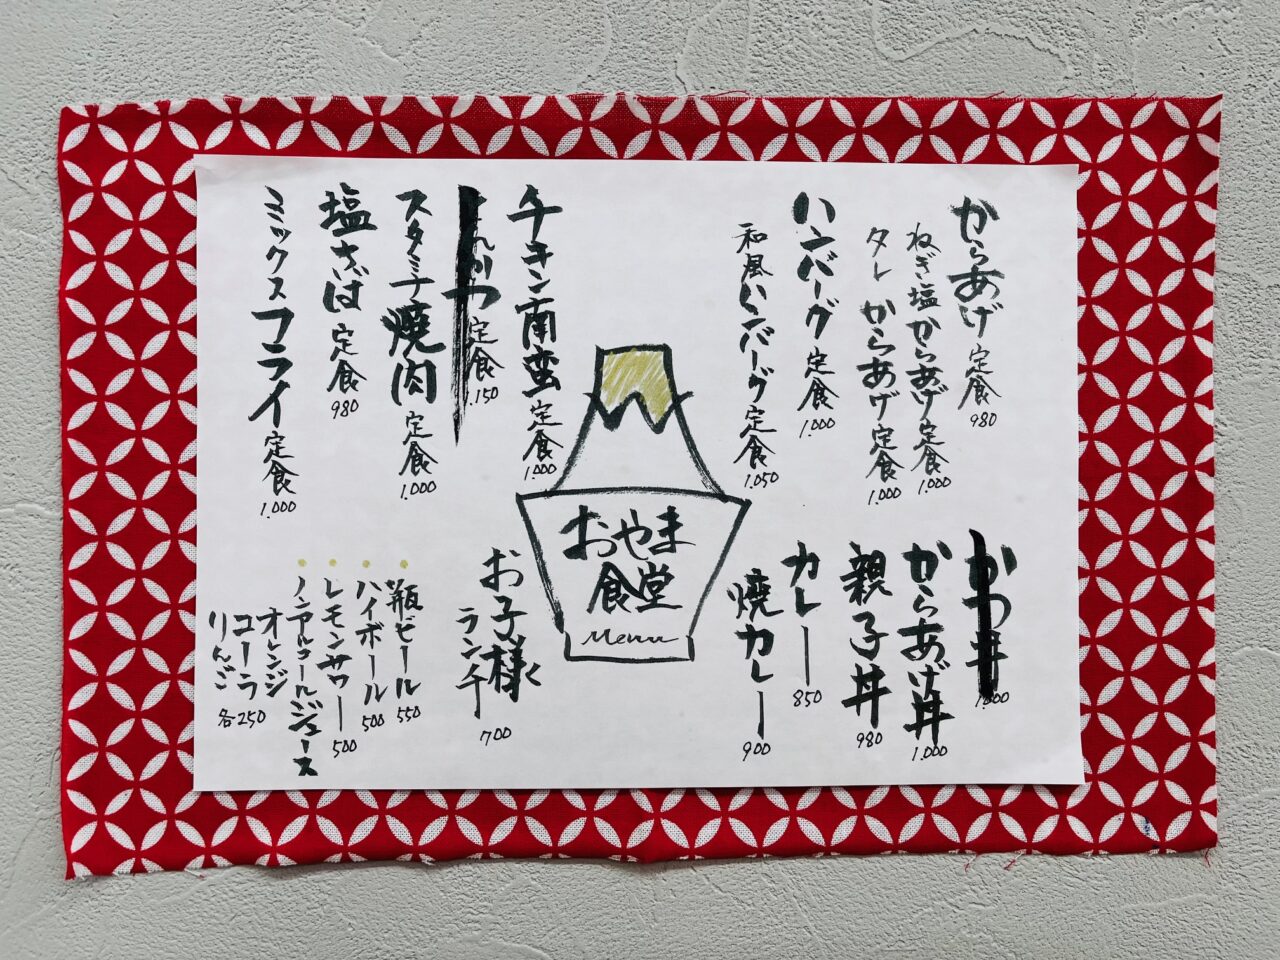 からあげ定食 980
ねぎ塩からあげ定食 1.000
タレからあげ定食 1.000
ハンバーグ定食 1.000
和風ハンバーグ定食 1.050
チキン南蛮定食 1.000
定食 1.150
スタミナ焼肉定食 1.000
塩さば定食 980
ミックスフライ定食 1.000
おやま
食堂
Menu
かつ丼 1.000
からあげ丼 1.000
親子丼 980
カレー 850
焼カレー 900
お子様
ランチ 700
瓶ビール 550
ハイボール 500
レモンサワー 500
ノンアルコールジュース
オレンジ
コーラ
りんご
各250